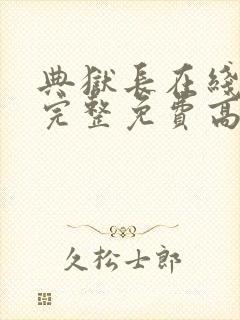 典獄長在綫
完整免費高
久松士郎